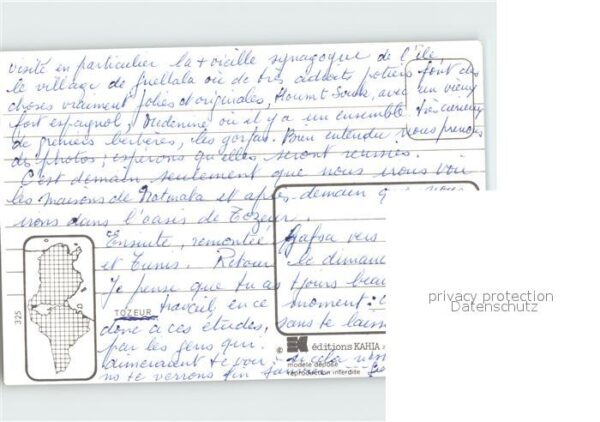 visité en particulier la + vieille synagogue de l'île
le village de Guellala où de très adroits potiers font des
choses vraiment jolies et originales, Houmt Souk, avec un vieux
fort espagnol, Médenine où il y a un ensemble très curieux
de greniers berbères, les gorfas. Bien entendu nous prenons
des photos ; espérons qu'elles seront réussies.
C'est demain seulement que nous irons voir
les maisons de Matmata et après-demain que nous
irons dans l'oasis de Tozeur.
Ensuite, remontée Gafsa vers
et Tunis. Retour le dimanc
Je pense que tu as tjours beau
travail en ce moment :
donc à ces études, sans te laiss
par les gens qui
aimeraient te voir
TOZEUR
325
© éditions KAHIA
modèle déposé
reproduction interdite
privacy protection
Datenschutz